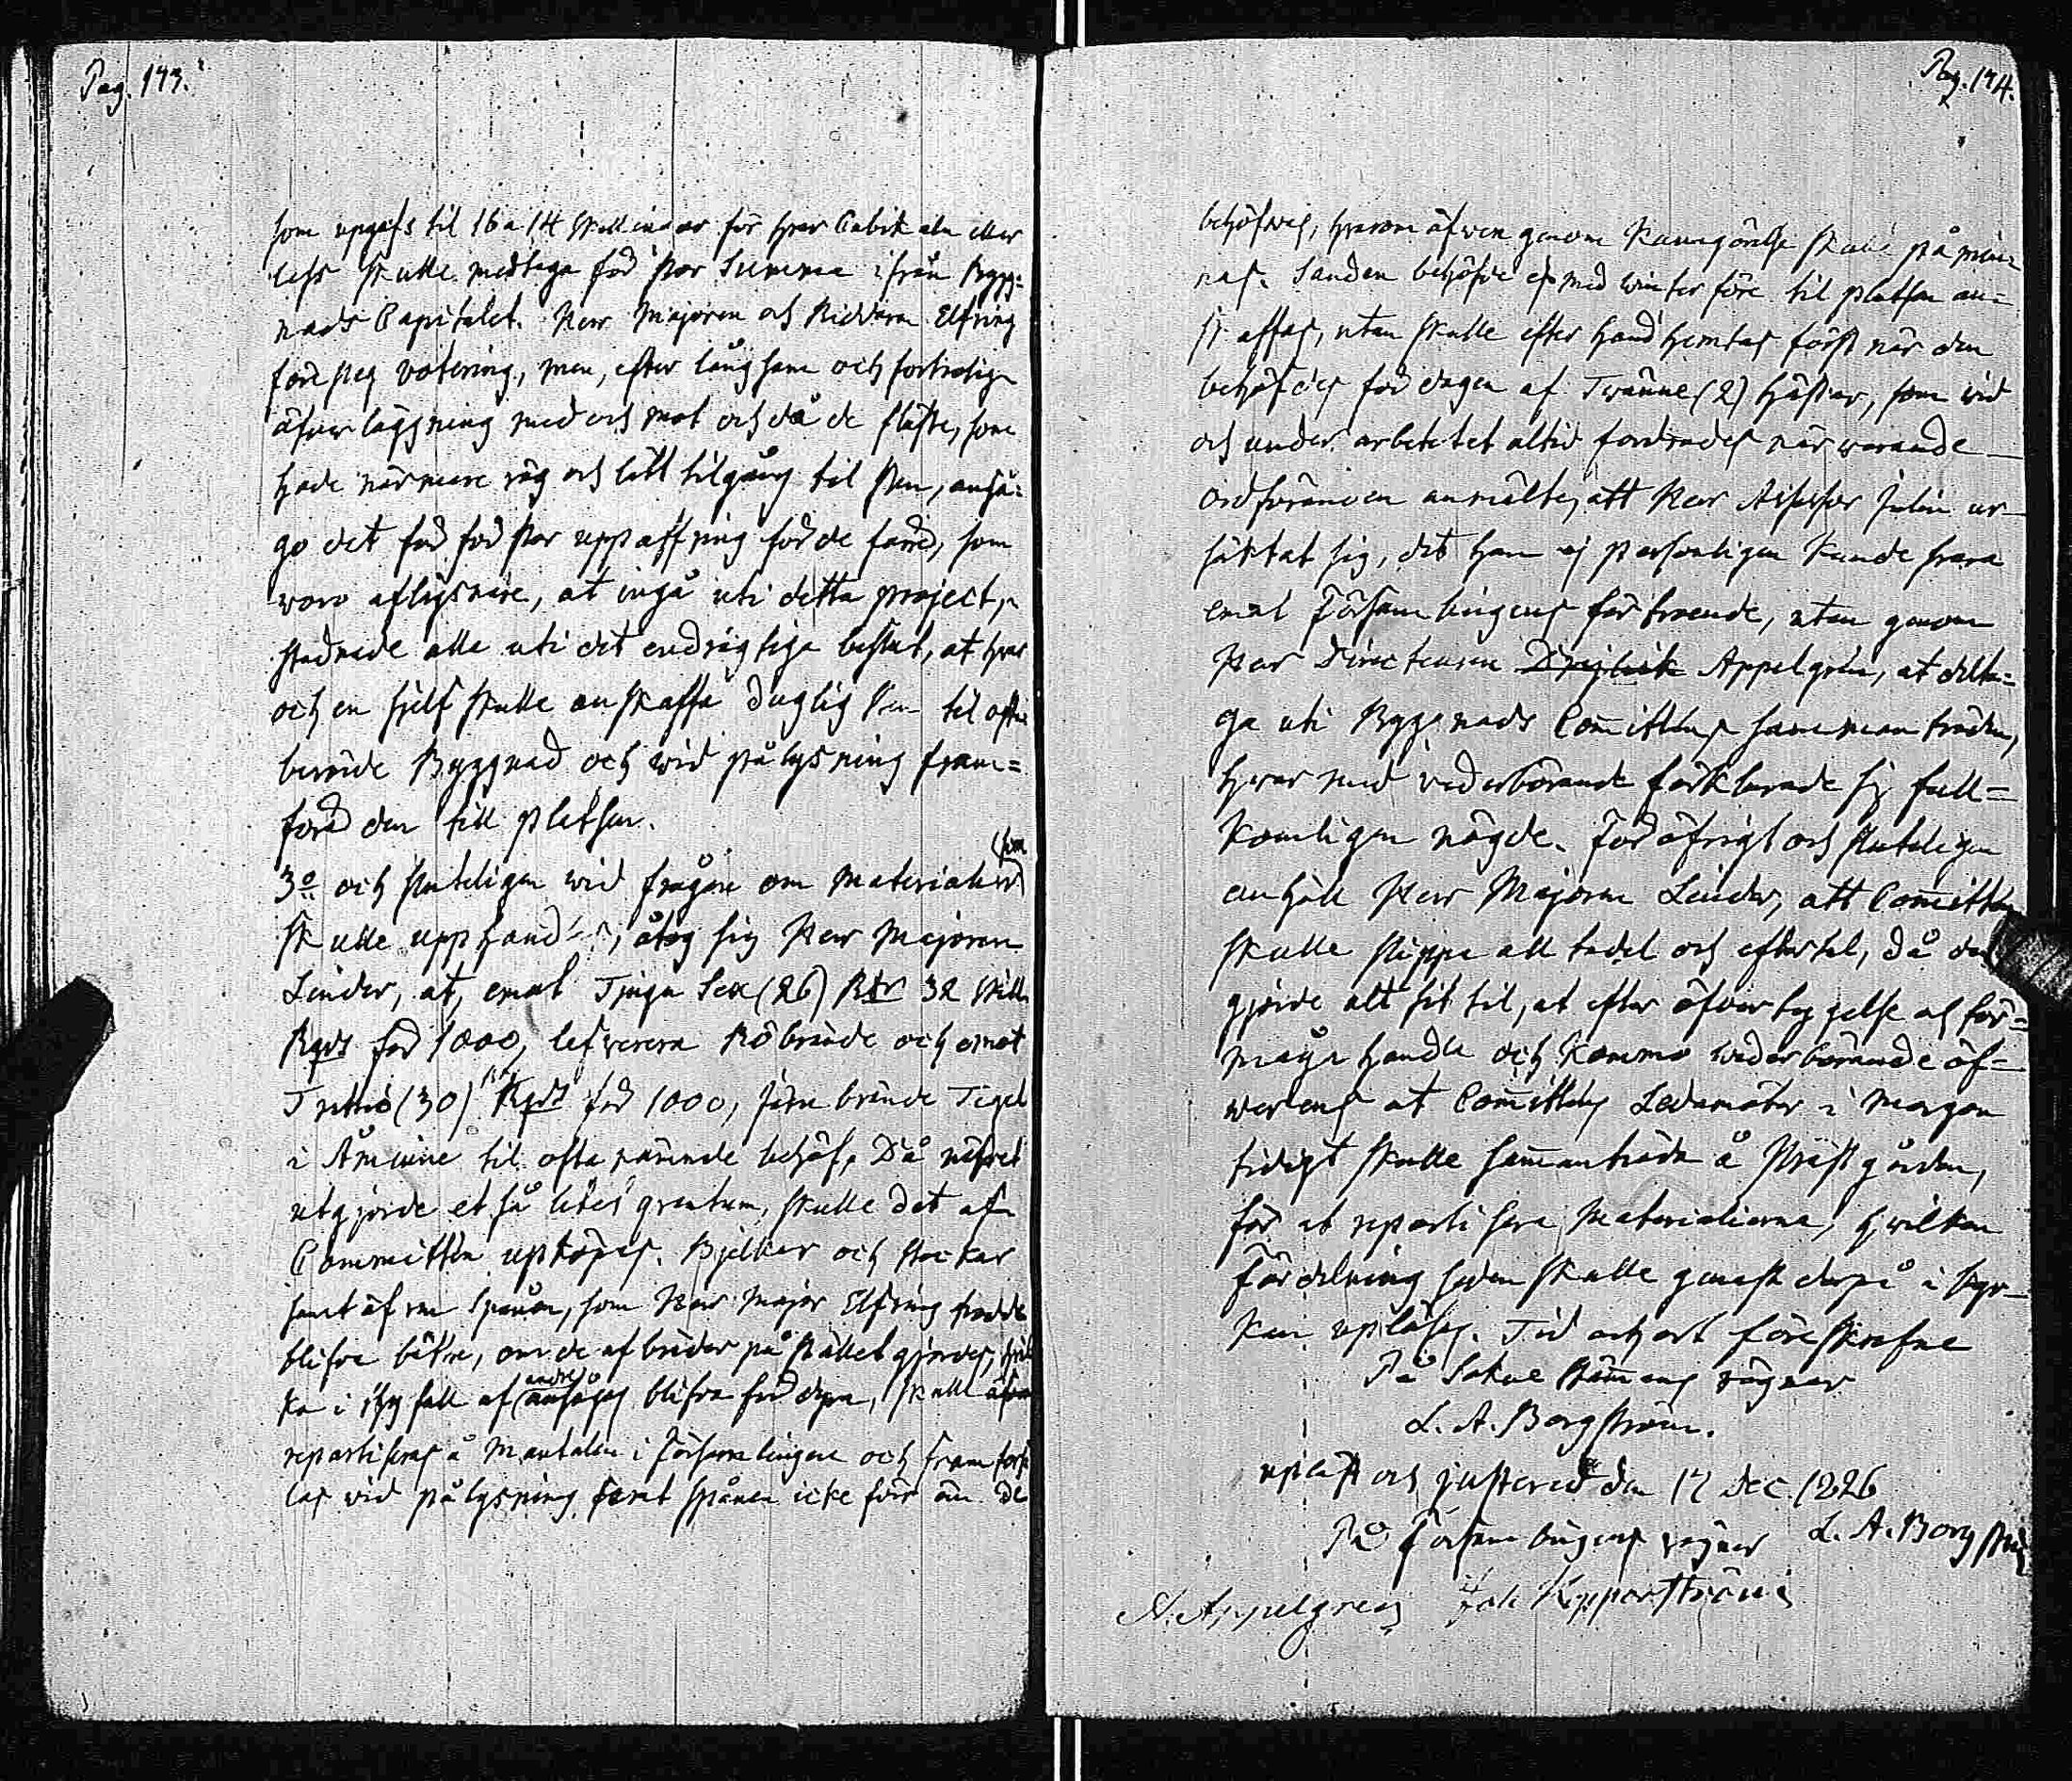 Pag. 173.
som upgafs til 16 a 14 skillingar för hvar Cubik aln eller
skulle medtaga för stor Summa ifrån Bygg-
nads Capitalet. Herr Majoren och Riddaren Elfving
föreslog votering, men, efter långsam och
öfverläggning med och mot och då de fläste, som
hade närmare väg och lätt tilgång til sten, anså-
go det för för stor uppoffring för de förre, som
woro aflägsnare, at ingå uti detta project,
stadnade alla uti det endrägtiga beslut, at hvar
och en sjelf skulle anskaffa duglig sten til ofta
berörde Byggnad och wid pålysning fram=
föra den till platsen.
3:o och sluteligen wid frågan om Materialier som
skulle upphandlas, åtog sig Herr Majoren
Linder, at, emot Tjugu Sex (26) Rdr 32 skill.
Rgds för 1000, lefverera Röbrände och emot
Trettio (30) Rgds för 1000, järnbrände Tegel
i Åminne til ofta nämnde behof. Då
utgjorde et så litet quantum, skulle det af
Committén upköpas. Bjelkar och stockar
samt äfven Spånen, som Herr Major Elfving trodde
blifva bätre, om de af bräder på stället gjordes, hvil
ka i thy fall af andre ansågos blifva för dyra, skulle äfven
repartiseras å Mantalen i Församlingen och framfors
las vid pålysning samt spånen icke förr än de
Pag. 174.
behöfves, hvarom äfven genom Kungörelse skulle påmin-
nas. Sanden behöfde ej med winterföre til platsen an-
skaffas, utan skulle efter hand hemtas först när den
behöfdes för dagen af Twänne (2) hästar, som vid
och under arbetet altid fordrades närwarande
Ordföranden anmälte, att Herr Assessor Julin ur-
säktat sig, det han ej personligen kunde
emot Församlingens förtroende, utan genom
Herr Directeuren Appelgrén, at delta=
ga uti Byggnads Committéns sammanträden,
hvarmed vederbörande förklarade sig full=
komligen nögde. För öfrigt och sluteligen
anhöll Herr Majoren Linder, att Committén
skulle slippa all tadel och eftertal, då den
gjorde alt sit til, at efter öfvertygelse och för=
måga handla och kommo wederbörande öf=
werens at Committéens Ledamöter i morgon
tidigt skulle sammanträda å Prästgården,
för at repartisera Materialierna, hvilken
fördelning sedan skulle genast derpå i Kyr-
kan upläsas. Tid och ort föreskrefne
På Sokne Stämmans vägnar
L. A. Borgström.
upläst och justerad den 17 Dec. 1826
På Församlingens vägnar L. A. Borgström
A. Appelgren Joh Kopparström